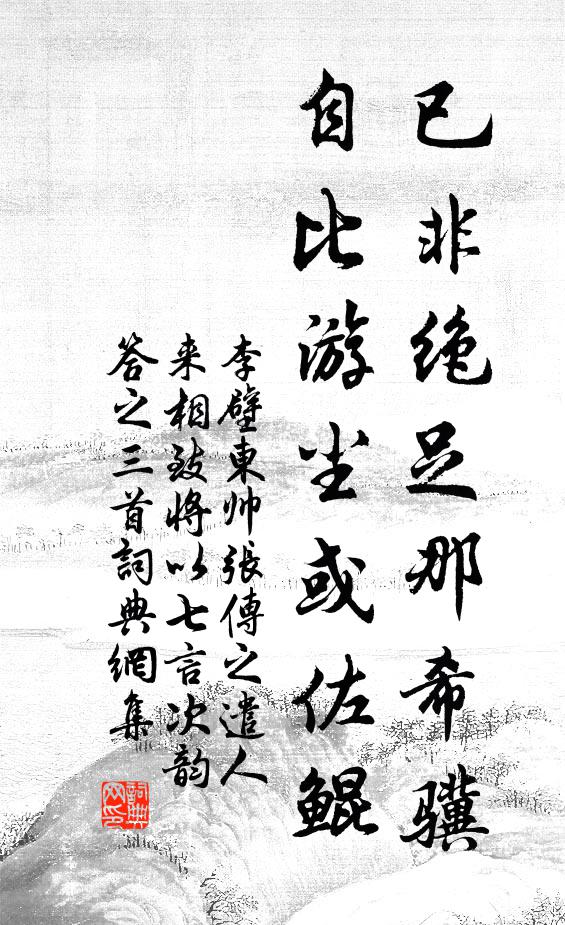 已非绝足那希骥
自比游尘或佐鲲
李壁東帅張傳之遣人
来相致将以七言次韵
答之三首詞典網集
詞典网印